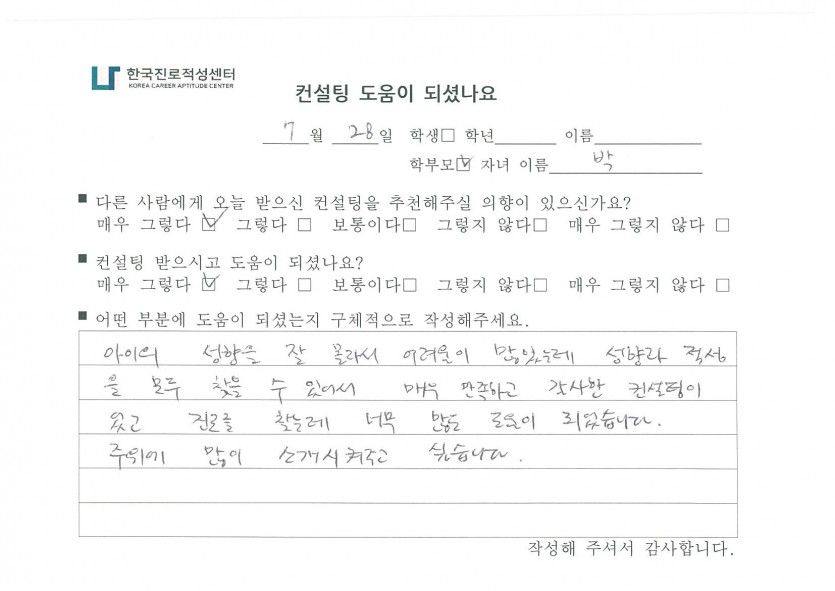 한국진로적성센터
KOREA CAREER APTITUDE CENTER
컨설팅 도움이 되셨나요
7월 28일 학생□ 학년 이름
학부모☑ 자녀 이름 박
■ 다른 사람에게 오늘 받으신 컨설팅을 추천해주실 의향이 있으신가요?
매우 그렇다 ☑ 그렇다 □ 보통이다□ 그렇지 않다□ 매우 그렇지 않다 □
■ 컨설팅 받으시고 도움이 되셨나요?
매우 그렇다 ☑ 그렇다 □ 보통이다□ 그렇지 않다□ 매우 그렇지 않다 □
■ 어떤 부분에 도움이 되셨는지 구체적으로 작성해주세요.
아이의 성향을 잘 몰라서 어려움이 많았는데 성향과 적성
을 모두 찾을 수 있어서 매우 만족하고 감사한 컨설팅이
었고 진로를 찾는데 너무 많은 도움이 되었습니다.
주위에 많이 소개시켜주고 싶습니다.
작성해 주셔서 감사합니다.